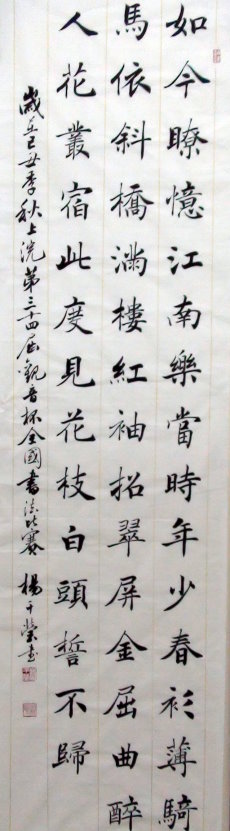 如今瞭憶江南樂當時年少春衫薄騎
馬依斜橋滿樓紅袖招翠屏金屈曲醉
人花叢宿此度見花枝白頭誓不歸
歲在己丑季秋上浣第三十四屆觀音杯全國書法比賽 楊千瑩書